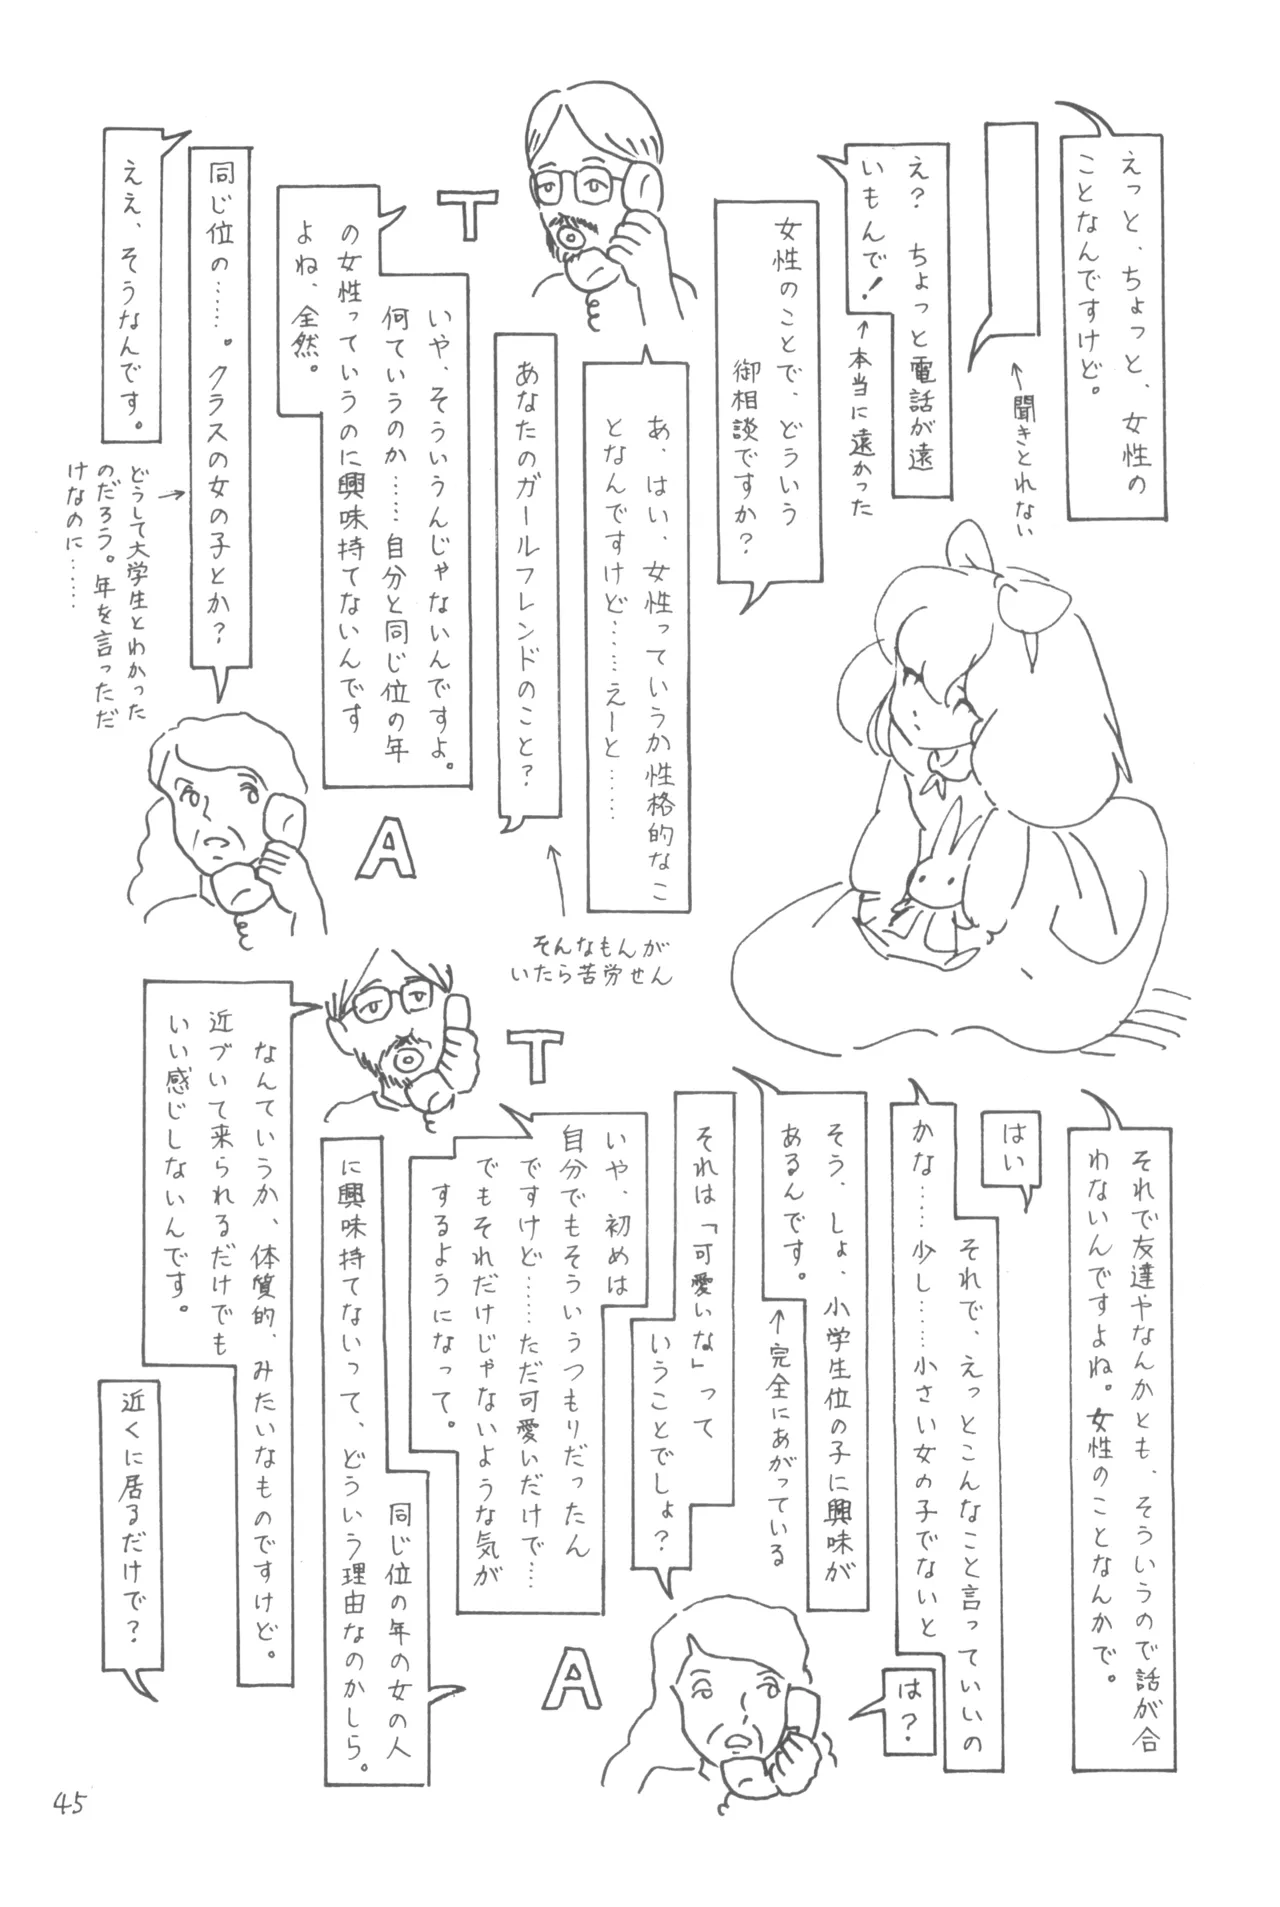 えっと、ちょっと、女性の
ことなんですけど。
←聞きとれない
え？ ちょっと電話が遠
いもんで！
←本当に遠かった
女性のことで、どういう
御相談ですか？
あ、はい、女性っていうか性格的なこ
となんですけど……えーと……
あなたのガールフレンドのこと？
←そんなもんが
いたら苦労せん
T
いや、そういうんじゃないんですよ。
何ていうのか……自分と同じ位の年
の女性っていうのに興味持てないんです
よね、全然。
同じ位の……。クラスの女の子とか？
ええ、そうなんです。
どうして大学生とわかった
のだろう。年を言っただ
けなのに……
→
A
それで友達やなんかとも、そういうので話が合
わないんですよね。女性のことなんかで。
はい
それで、えっとこんなこと言っていいの
かな……少し……小さい女の子でないと
は？
そう、しょ、小学生位の子に興味が
あるんです。
←完全にあがっている
それは「可愛いな」って
いうことでしょ？
T
いや、初めは
自分でもそういうつもりだったん
ですけど……ただ可愛いだけで…
でもそれだけじゃないような気が
するようになって。
同じ位の年の女の人
に興味持てないって、どういう理由なのかしら。
A
なんていうか、体質的、みたいなものですけど。
近づいて来られるだけでも
いい感じしないんです。
近くに居るだけで？
45